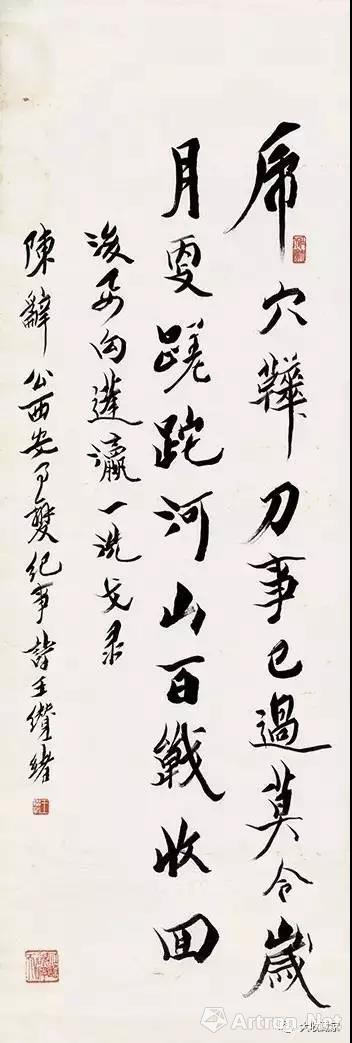 虎穴鞾刀事已過莫令歲
月更蹉跎河山百戰收回
後要向蓬瀛一洗戈录
陳辭公西安事變紀事詩王纘緒
Artron.Net
大收藏家